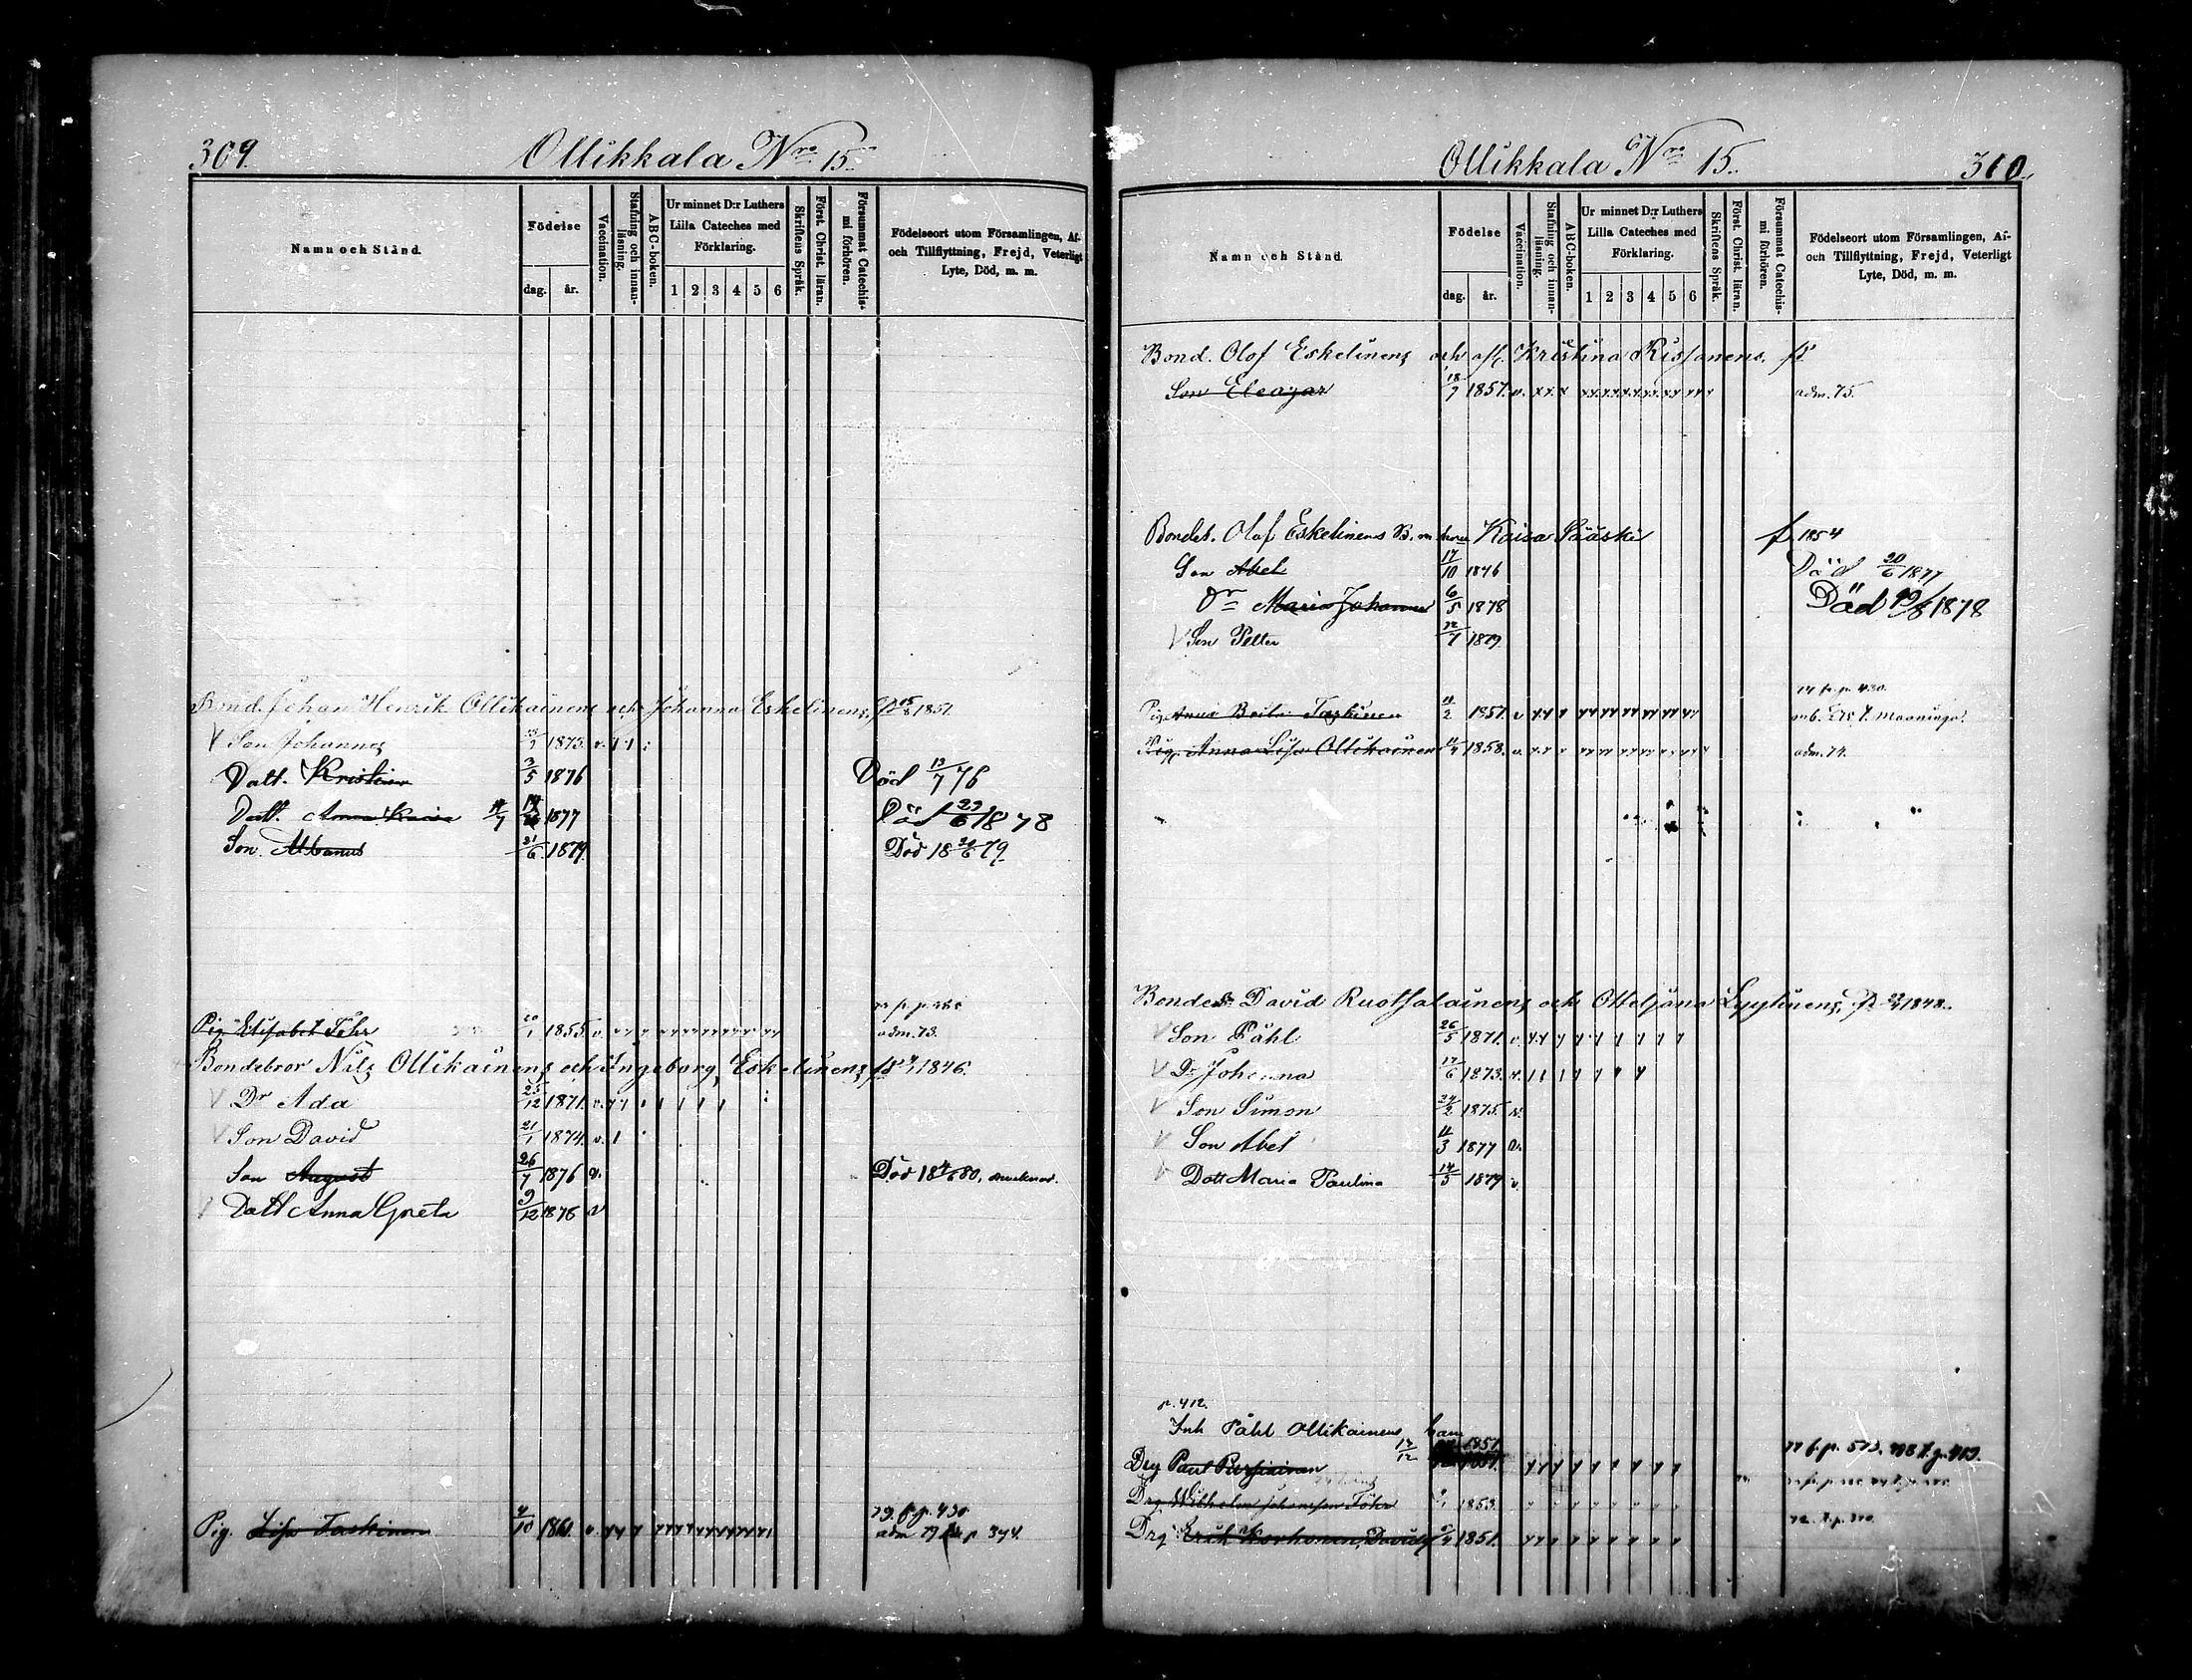 309.
Ollikkala Nro 15.
Namn och Stånd.
Födelse
dag. år.
Vaccination.
Stafning och innanläsning.
ABC-boken.
Ur minnet D:r Luthers Lilla Cateches med Förklaring.
1 2 3 4 5 6
Skriftens Språk.
Först. Christ. läran.
Försummat Catechismi förhören.
Födelseort utom Församlingen, Af- och Tillflyttning, Frejd, Veterligt Lyte, Död, m. m.
Bond. Johan Henrik Ollikainens och Johanna Eskelinens, 1851.
Son Johannes 1873. v.
Dott. Kristina 3/5 1876 Död 13/7 76
Dott. Anna Kaisa 1877 Död 29/6 1878
Son. Albanus 21/6 1879. Död 18 79.
Pig. Elisabet Föhr 20/1 1855. v. adm. 73.
Bondebror Nils Ollikainens och Ingeborg Eskelinens 1846.
Dr Ada 25/12 1871. v.
Son David 21/1 1874. v.
Son August 26/7 1876 v. Död 18 80,
Dott Anna Greta 9/12 1878 v
79. f. p. 430.
Pig. Lisa Taskinen 4/10 1861. v. adm 79 p 394.
Ollikkala Nro 15.
310.
Namn och Stånd.
Födelse
dag. år.
Vaccination.
Stafning och innanläsning.
ABC-boken.
Ur minnet D:r Luthers Lilla Cateches med Förklaring.
1 2 3 4 5 6
Skriftens Språk.
Först. Christ. läran.
Försummat Catechismi förhören.
Födelseort utom Församlingen, Af- och Tillflyttning, Frejd, Veterligt Lyte, Död, m. m.
Bond. Olof Eskelinens och afl. Kristina Rissanens.
Son Eleazar 18/7 1857. v. adm. 75.
Bondes. Olof Eskelinens B. m. hru Kaisa Sääski f. 1854
Son Abel 17/10 1876 Död 20/6 1877
Dr Maria Johanna 6/5 1878 Död 1878
Son Petter 12/7 1879.
Pig. Anna Beita Taskinen 11/2 1857. v Maaninga.
Pig. Anna Lisa Ollikainen 1858. v. adm. 74.
Bondes. David Ruotsalainens och Otteljana Lyytinens, 1848.
Son Påhl 26/5 1871. v.
Dr Johanna 17/6 1873. v.
Son Simon 24/2 1875. v.
Son Abel 11/3 1877 v.
Dott Maria Paulina 14/5 1879 v.
p. 412.
Inh Påhl Ollikainens
Drg Paul 13/12 1857.
Drg. Wilhelm Johansson Föhr 1853.
Drg. Erik Korhonen, Davids 1851.